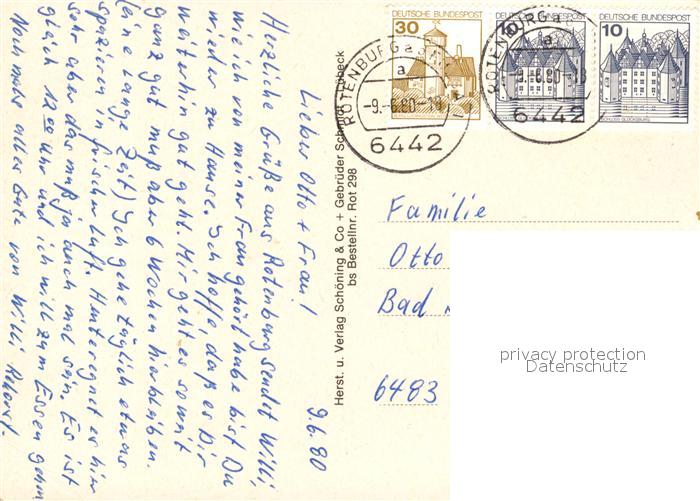 9.6.80
Lieber Otto + Frau!
Herzliche Grüße aus Rotenburg sendet Willi,
wie ich von meiner Frau gehört habe bist Du
wieder zu Hause. Ich hoffe, daß es Dir
weiterhin gut geht. Mir geht es somit
ganz gut muß aber 6 Wochen hierbleiben.
(eine lange Zeit) Ich gehe täglich etwas
spazieren in frischer Luft. Heute regnet es hier
sehr aber das muß ja auch mal sein. Es ist
gleich 12 00 Uhr und ich will zum Essen gehen
Nochmals alles Gute von Willi
Herst. u. Verlag Schöning & Co + Gebrüder Schmidt, Lübeck
bs Bestellnr. Rot 298
DEUTSCHE BUNDESPOST
30
DEUTSCHE BUNDESPOST
10
SCHLOSS GLÜCKSBURG
DEUTSCHE BUNDESPOST
10
SCHLOSS GLÜCKSBURG
ROTENBURG a
a
-9.-6.80-18
6442
ROTENBURG a
a
-9.-6.80-18
6442
Familie
Otto
Bad
6483
privacy protection
Datenschutz